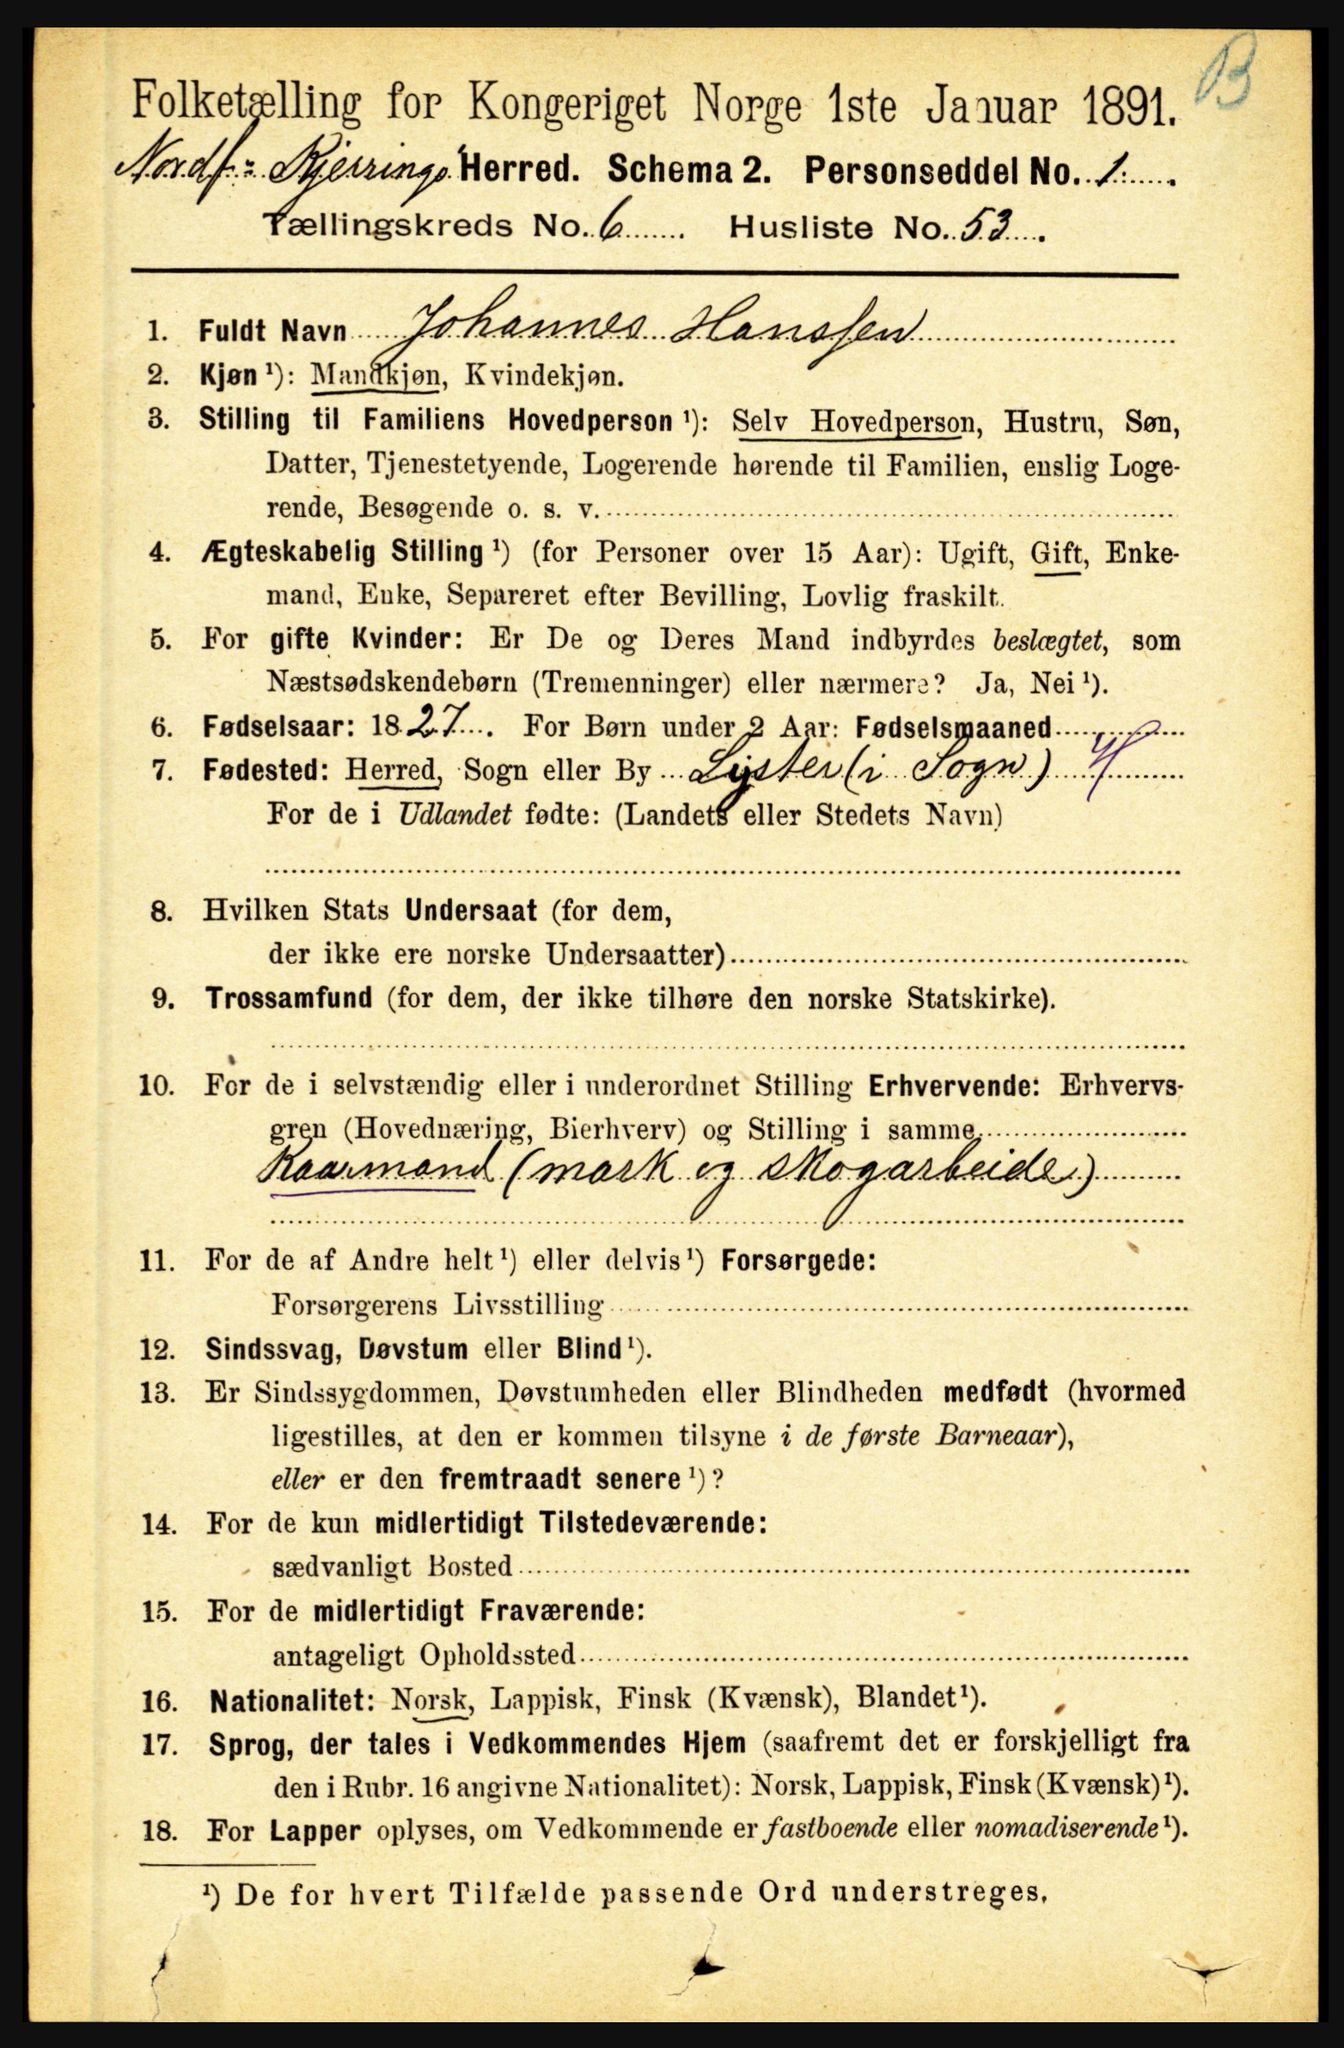 B
Folketælling for Kongeriget Norge 1ste Januar 1891.
Nordf.- Kjerringø Herred. Schema 2. Personseddel No. 1.
Tællingskreds No. 6 Husliste No. 53.
1. Fuldt Navn Johannes Hanssen
2. Kjøn ¹): Mandkjøn, Kvindekjøn.
3. Stilling til Familiens Hovedperson ¹): Selv Hovedperson, Hustru, Søn,
Datter, Tjenestetyende, Logerende hørende til Familien, enslig Loge-
rende, Besøgende o. s. v.
4. Ægteskabelig Stilling ¹) (for Personer over 15 Aar): Ugift, Gift, Enke-
mand, Enke, Separeret efter Bevilling, Lovlig fraskilt.
5. For gifte Kvinder: Er De og Deres Mand indbyrdes beslægtet, som
Næstsødskendebørn (Tremenninger) eller nærmere? Ja, Nei ¹).
6. Fødselsaar: 1827. For Børn under 2 Aar: Fødselsmaaned
7. Fødested: Herred, Sogn eller By Lyster (i Sogn)
For de i Udlandet fødte: (Landets eller Stedets Navn)
8. Hvilken Stats Undersaat (for dem,
der ikke ere norske Undersaatter)
9. Trossamfund (for dem, der ikke tilhøre den norske Statskirke).
10. For de i selvstændig eller i underordnet Stilling Erhvervende: Erhvervs-
gren (Hovednæring, Bierhverv) og Stilling i samme
Kaarmand (mark og skogarbeide)
11. For de af Andre helt ¹) eller delvis ¹) Forsørgede:
Forsørgerens Livsstilling
12. Sindssvag, Døvstum eller Blind ¹).
13. Er Sindssygdommen, Døvstumheden eller Blindheden medfødt (hvormed
ligestilles, at den er kommen tilsyne i de første Barneaar),
eller er den fremtraadt senere ¹)?
14. For de kun midlertidigt Tilstedeværende:
sædvanligt Bosted
15. For de midlertidigt Fraværende:
antageligt Opholdssted
16. Nationalitet: Norsk, Lappisk, Finsk (Kvænsk), Blandet ¹).
17. Sprog, der tales i Vedkommendes Hjem (saafremt det er forskjelligt fra
den i Rubr. 16 angivne Nationalitet): Norsk, Lappisk, Finsk (Kvænsk) ¹).
18. For Lapper oplyses, om Vedkommende er fastboende eller nomadiserende ¹).
¹) De for hvert Tilfælde passende Ord understreges.